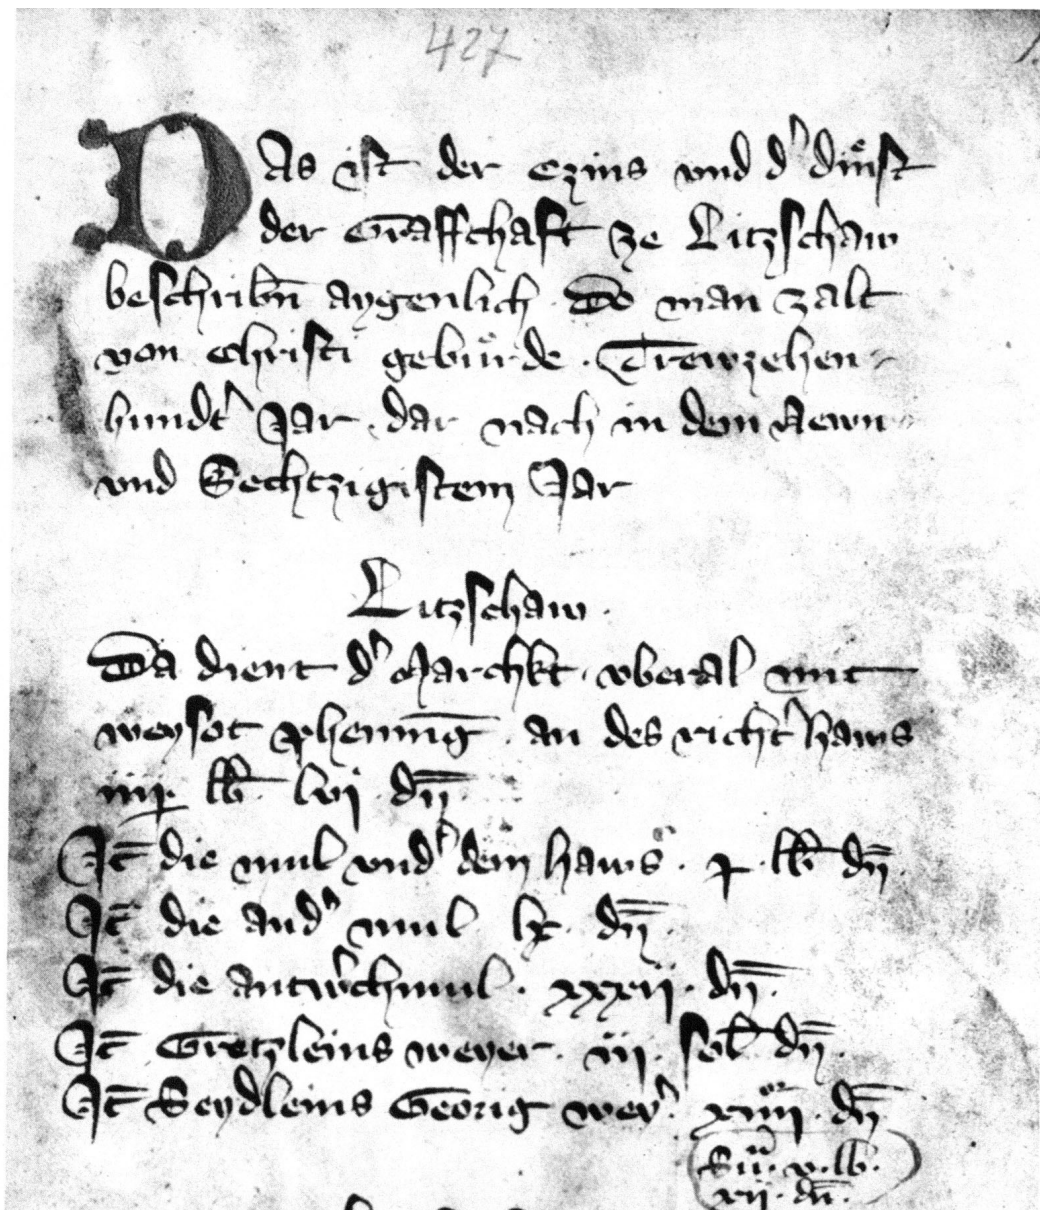 427
DAs ist der Czins vnd d' dinst
der Graffchaft ze Litzschaw
beschribn̄ aygenlich · Do man zalt
von Christi gebuͤrde · Drewzehen-
hundt' Jar · dar nach in dem Newn-
vnd Sechtzigistem Jar
Litzschaw ·
Da dient d' Marchkt · vberal mit
weysot phenni̅g · an des richt' haws
iiij · lb · lvi · dn̄ ·
It̄ die mul vnd' dem haws · lb dn̄ ·
It̄ die and' mul lx · dn̄ ·
It̄ die antw'chmul · xxxii · dn̄ ·
It̄ Gretzleins weyer · iij · sol · dn̄ ·
It̄ Seydleins Georig wey' · xiiij · dn̄
Su̅ · v · lb ·
xij · dn̄ ·